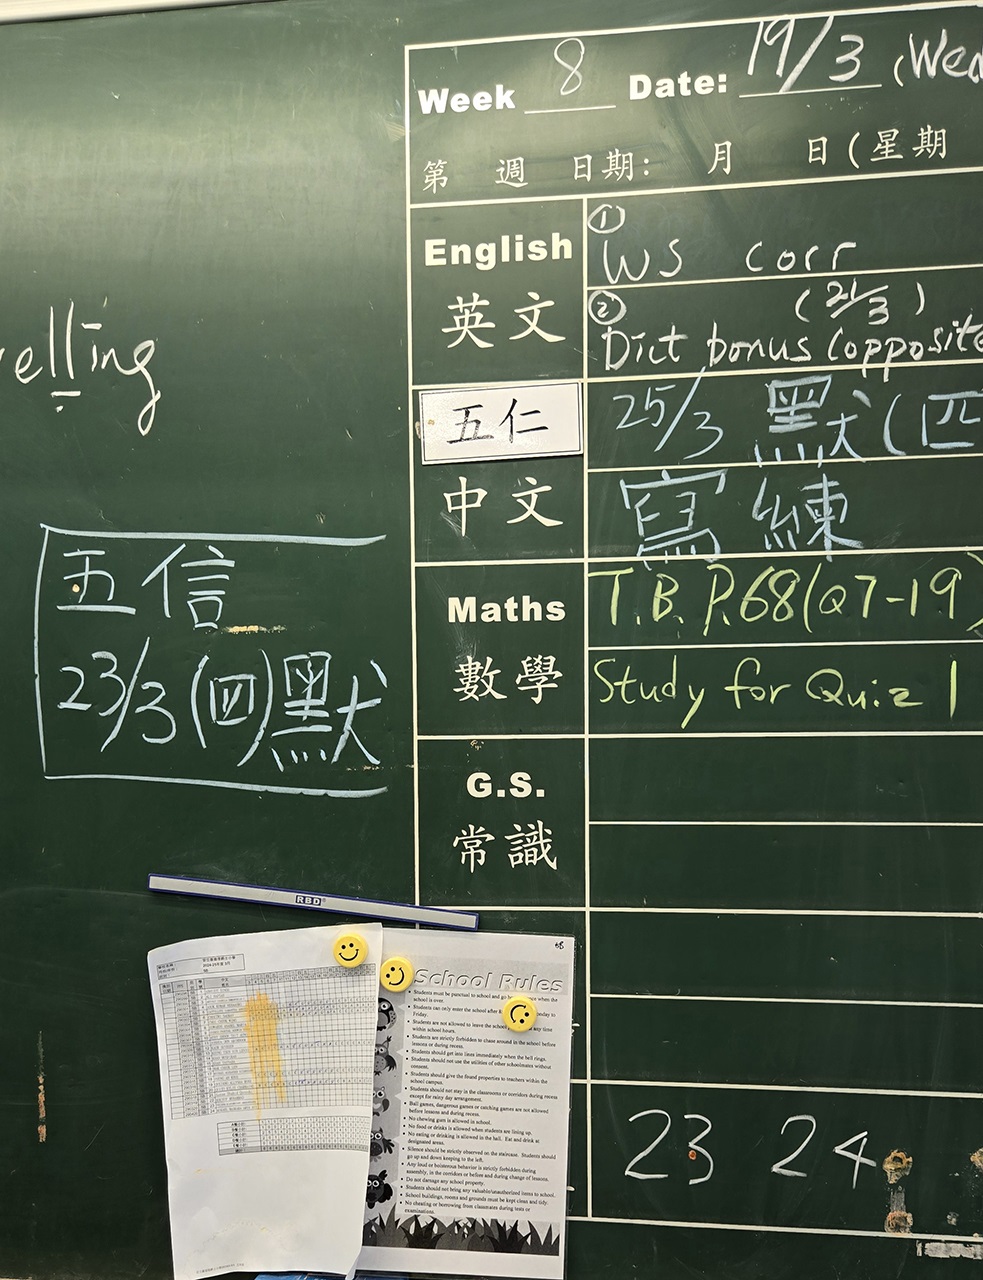 Week 8 Date: 19/3 (Wed
第 週 日期: 月 日(星期
English
英文
① WS corr
② (21/3)
Dict bonus (opposite
五仁
中文
25/3 默(匹
寫練
Maths
數學
T.B. P.68(Q7-19)
Study for Quiz 1
G.S.
常識
23 24
elling
五信
23/3 (四)默
RBD
School Rules
Students must be punctual to school and go
school is over.
Friday.
Students are not allowed to leave the school any time
within school hours.
Students are strictly forbidden to chase around in the school before
lessons or during recess.
Students should get into lines immediately when the bell rings.
Students should not use the utilities of other schoolmates without
consent.
Students should give the found properties to teachers within the
school campus.
Students should not stay in the classrooms or corridors during recess
except for rainy day arrangement.
Ball games, dangerous games or catching games are not allowed
before lessons and during recess.
No chewing gum is allowed in school.
No food or drinks is allowed when students are lining up.
No eating or drinking is allowed in the hall. Eat and drink at
designated areas.
Silence should be strictly observed on the staircase. Students should
go up and down keeping to the left.
Any loud or boisterous behavior is strictly forbidden during
assembly, in the corridors or before and during change of lessons.
Do not damage any school property.
Students should not bring any valuable/unauthorized items to school.
School buildings, rooms and grounds must be kept clean and tidy.
No cheating or borrowing from classmates during tests or
examinations.